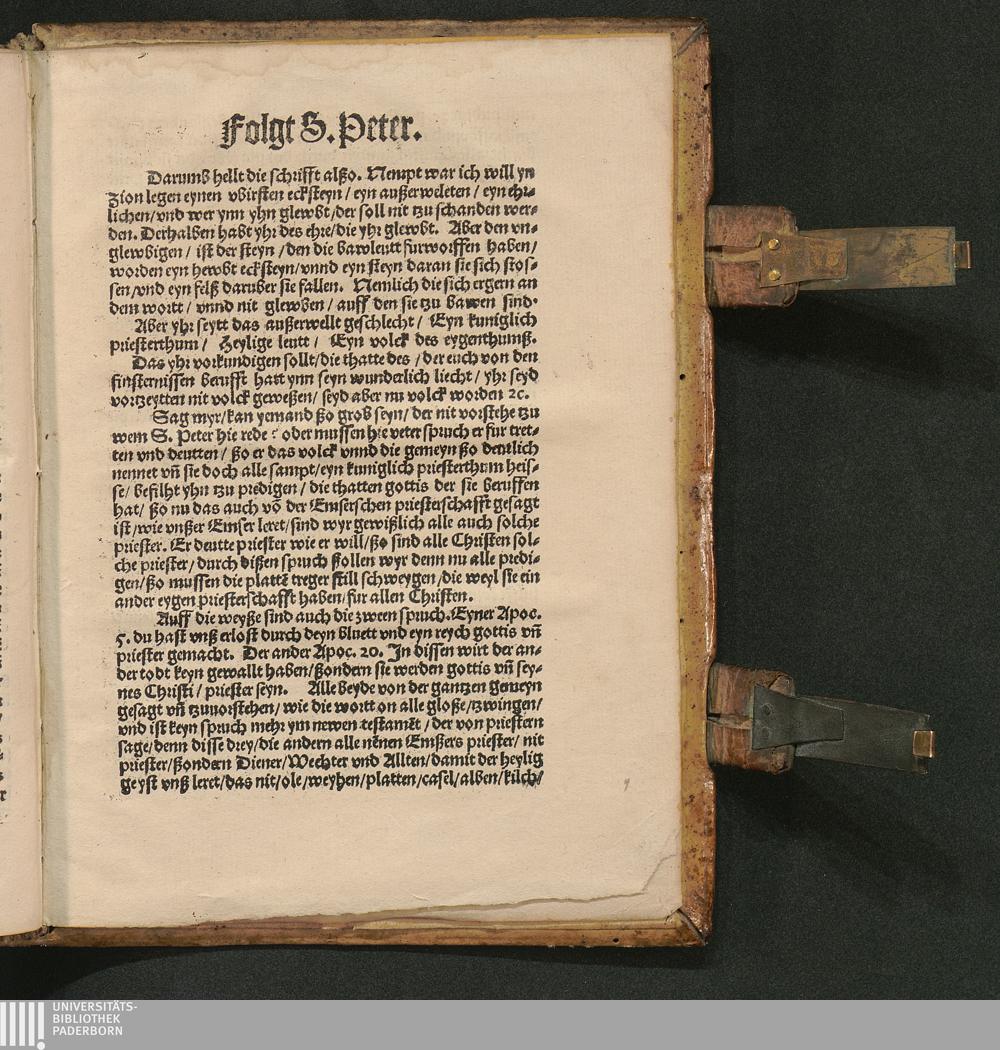 Folgt S. Peter.
Darumb hellt die schrifft alßo. Nempt war ich will yn
Zion legen eynen vbirsten ecksteyn / eyn außerweleten / eyn ehr⸗
lichen/vnd wer ynn yhn glewbt/der soll nit tzu schanden wer⸗
den. Derhalben habt yhr des ehre/die yhr glewbt. Aber den vn⸗
glewbigen / ist der steyn /den die bawleutt furworffen haben/
worden eyn hewbt ecksteyn/vnnd eyn steyn daran sie sich stos⸗
sen/vnd eyn felß daruber sie fallen. Nemlich die sich ergern an
dem wortt / vnnd nit glewben / auff den sie tzu bawen sind.
Aber yhr seytt das außerwellt geschlecht / Eyn kuniglich
priesterthum / Heylige leutt / Eyn volck des eygenthumß.
Das yhr vorkundigen sollt/die thatte des / der euch von den
finsternissen berufft hatt ynn seyn wunderlich liecht/ yhr seyd
vortzeytten nit volck geweßen/ seyd aber nu volck worden ⁊c.
Sag myr/kan yemand ßo grob seyn/ der nit vorstehe tzu
wem S. Peter hie rede : oder mussen hie veter spruch er fur tret⸗
ten vnd deutten / ßo er das volck vnnd die gemeyn ßo deutlich
nennet vn̄ sie doch alle sampt/eyn kuniglich priesterthum heis⸗
se/ befilht yhn tzu predigen / die thatten gottis der sie beruffen
hat/ ßo nu das auch vō der Emserschen priesterschafft gesagt
ist /wie vnßer Emser leret/sind wyr gewißlich alle auch solche
priester. Er deutte priester wie er will/ßo sind alle Christen sol⸗
che priester/ durch dißen spruch ßollen wyr denn nu alle predi⸗
gen/ßo mussen die plattē treger still schweygen /die weyl sie ein
ander eygen priesterschafft haben/fur allen Christen.
Auff die weyße sind auch die zween spruch. Eyner Apoc.
5. du hast vnß erlost durch deyn bluett vnd eyn reych gottis vn̄
priester gemacht. Der ander Apoc. 20. Jn dissen wirt der an⸗
der todt keyn gewallt haben/ßondern sie werden gottis vn̄ sey⸗
nes Christi / priester seyn. Alle beyde von der gantzen gemeyn
gesagt vn̄ tzuuorstehen/ wie die wortt on alle gloße/tzwingen/
vnd ist keyn spruch mehr ym newen testamēt / der von priestern
sage/denn disse drey/die andern alle nēnen Emßers priester/ nit
priester/ßondern Diener/Wechter vnd Allten/damit der heylig
geyst vnß leret/das nit/ole/weyhen/platten/casel/alben/kilch/
UNIVERSITÄTS-
BIBLIOTHEK
PADERBORN